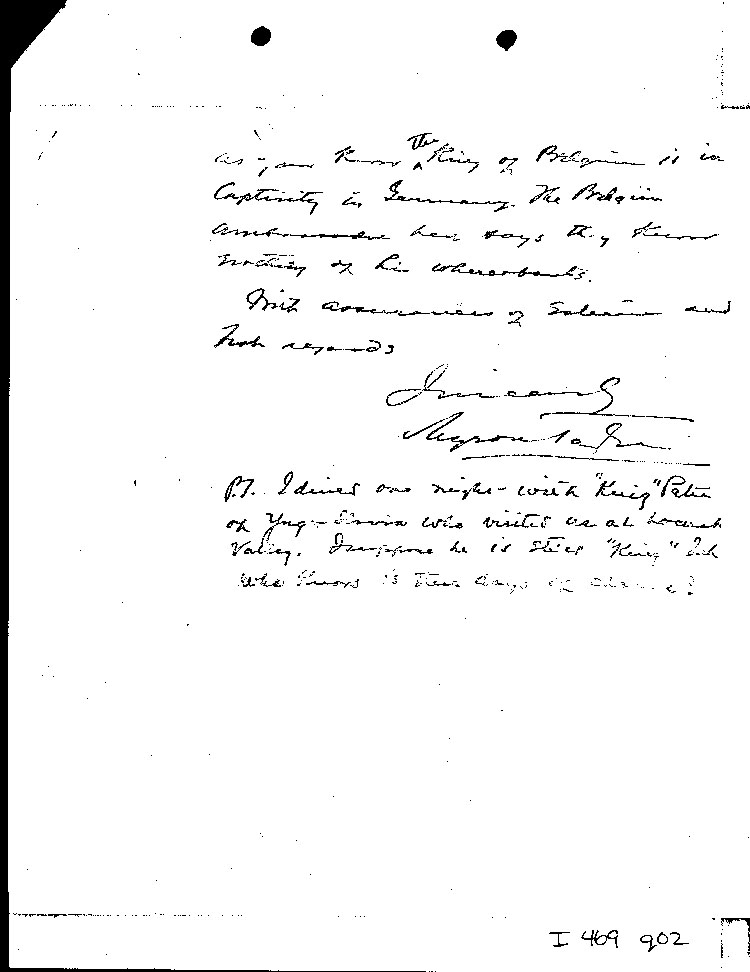 as you know The King of Belgium is in
Captivity in Germany. The Belgian
ambassador here says they know
nothing of his whereabouts.
With assurances of esteem and
high regards
Sincerely
Myron Taylor
P.S. I dined one night with "King" Peter
of Yugo-Slavia who visited us at Locust
Valley. I suppose he is still "King" but
who knows in these days of change?
I 469 902